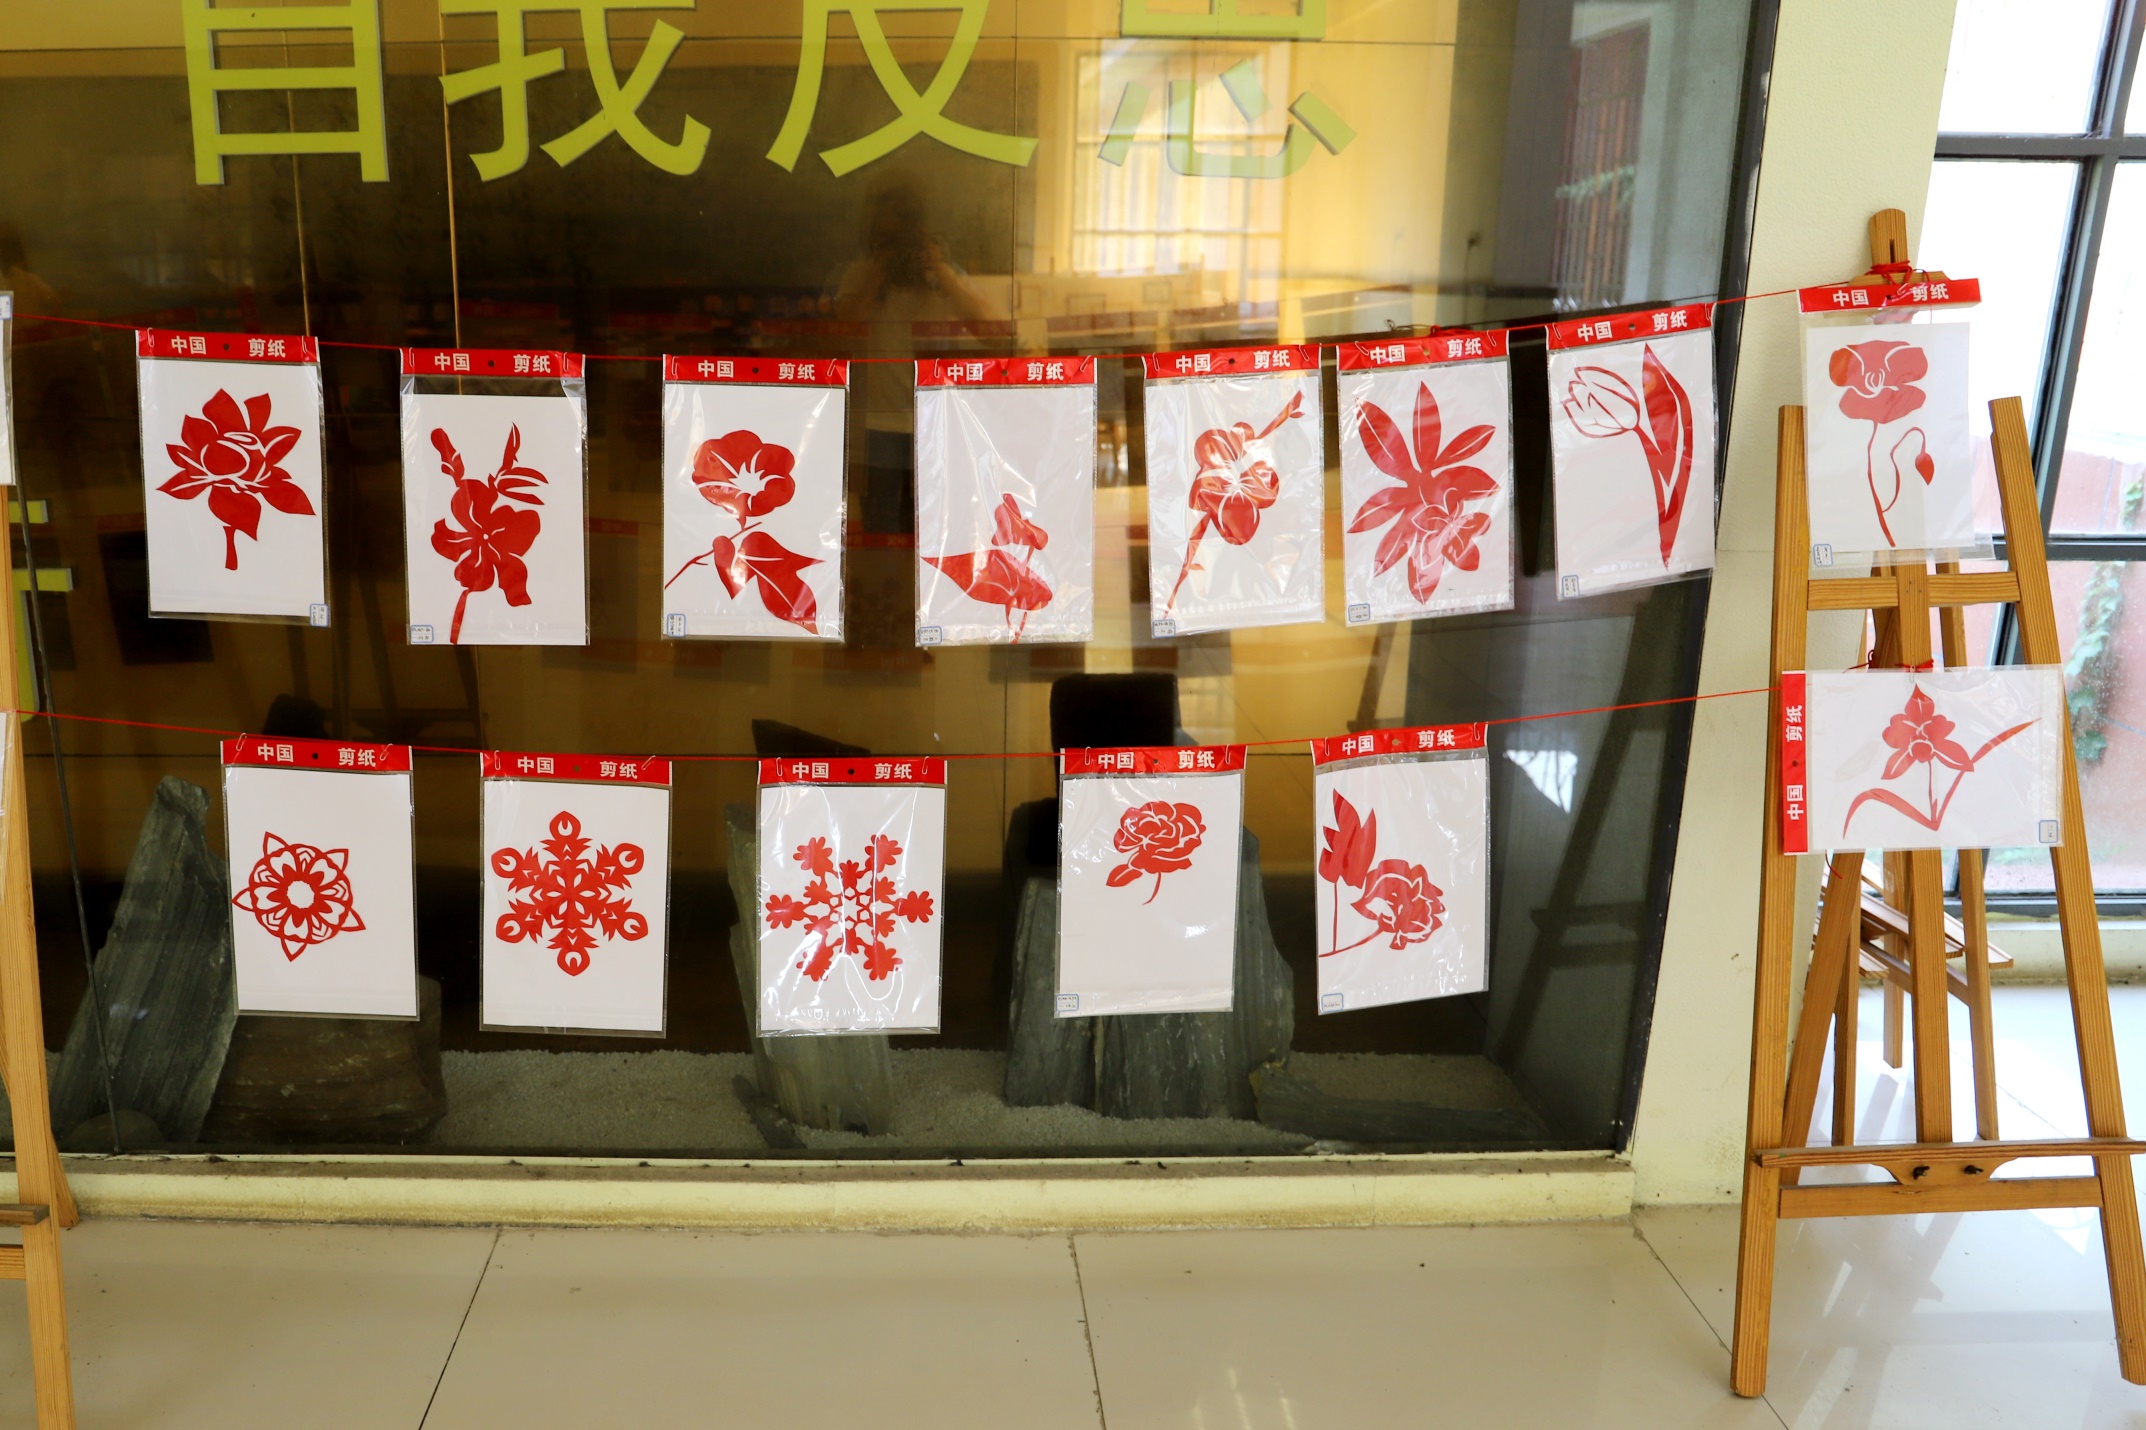 自我反思
中国 剪纸
中国 剪纸
中国 剪纸
中国 剪纸
中国 剪纸
中国 剪纸
中国 剪纸
中国 剪纸
中国 剪纸
中国 剪纸
中国 剪纸
中国 剪纸
中国 剪纸
中国 剪纸